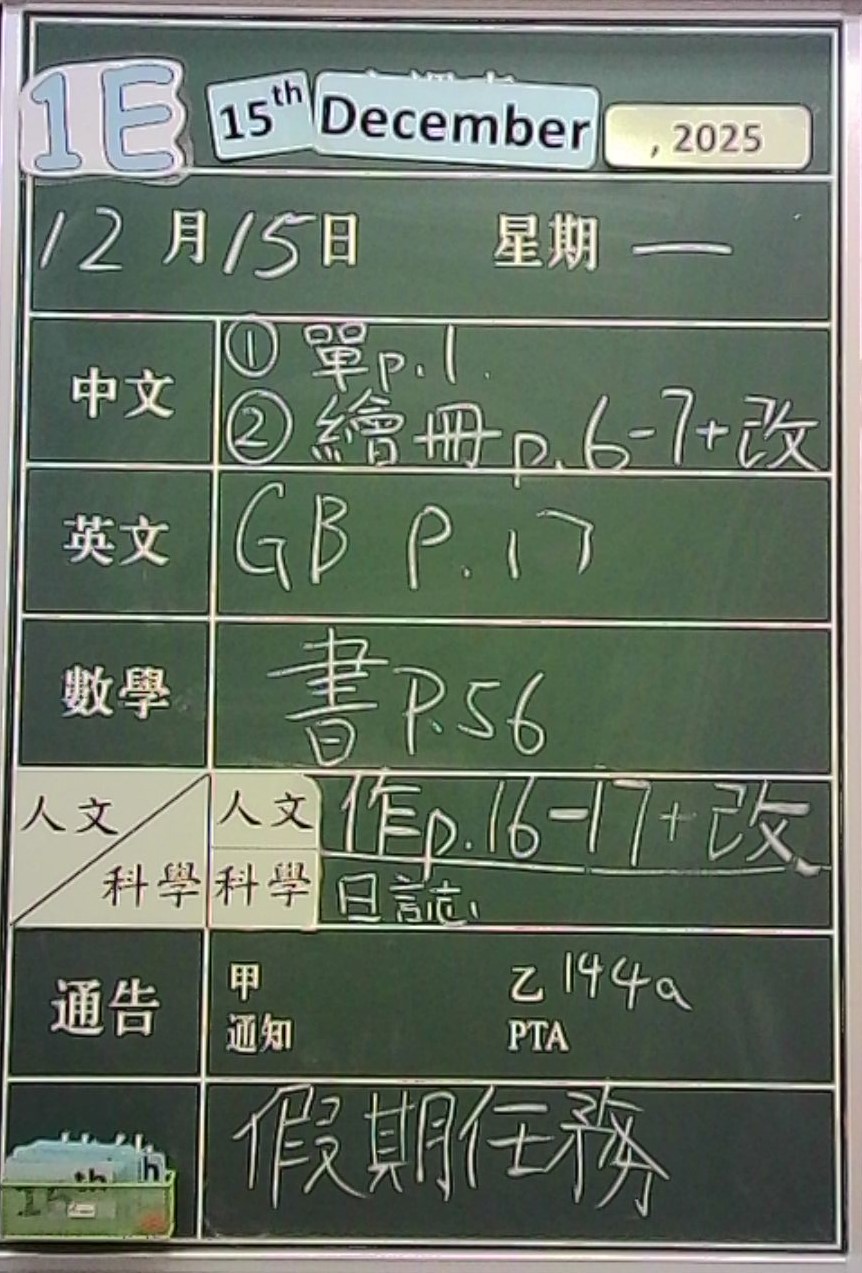 1E 15th December , 2025
12月15日 星期一
中文 ① 單p.1
② 繪冊p.6-7+改
英文 GB P.17
數學 書P.56
人文 科學 人文 作p.16-17+改
科學 日誌
通告 甲 乙 144a
通知 PTA
假期任務